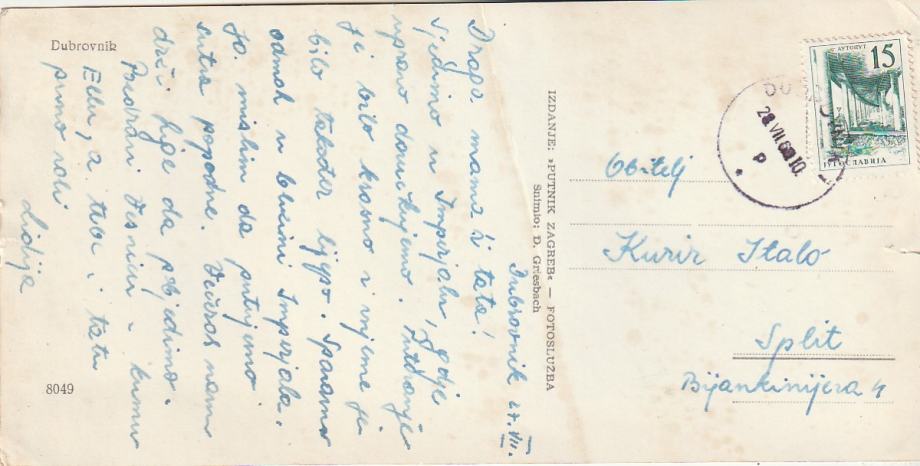 Dubrovnik
Dubrovnik 27.VII.
Draga mama i tata!
Sjedimo u Imperjalu, gdje
upravo doručkujemo.
je bilo krasno i vrijeme je
bilo također lijepo. Spavamo
odmah u blizini Imperjala.
Jo. mislim da putujemo
sutra popodne. Jučer
drži lige da pobjedimo.
Pozdravi Jesnicu i kumu
Ellu, a tebe i tatu
puno voli
Lidija
8049
IZDANJE: »PUTNIK ZAGREB« — FOTOSLUŽBA
Snimio: D. Griesbach
15
AUTOPUT
JUGOSLAVIJA
28.VII.60 10
P
Obitelj
Kurir Italo
Split
Bijankinijeva 4